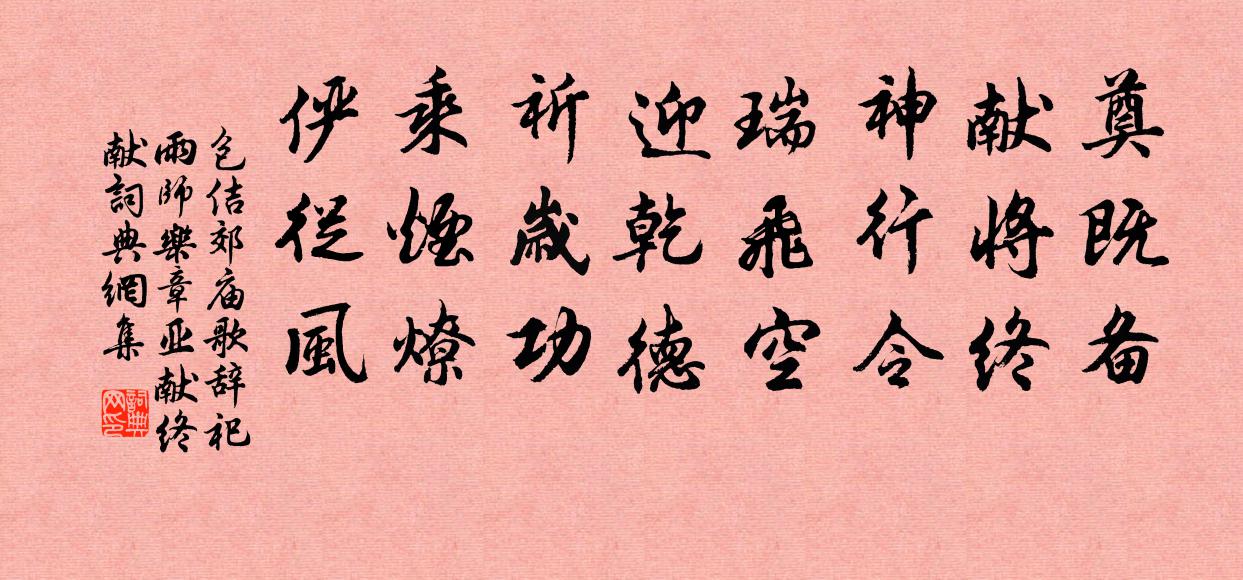 奠既备
献將终
神行令
瑞飛空
迎乾德
祈歲功
乘煙燎
俨從風
包佶郊庙歌辞祀
雨師樂章亚献终
献詞典網集
詞典网印